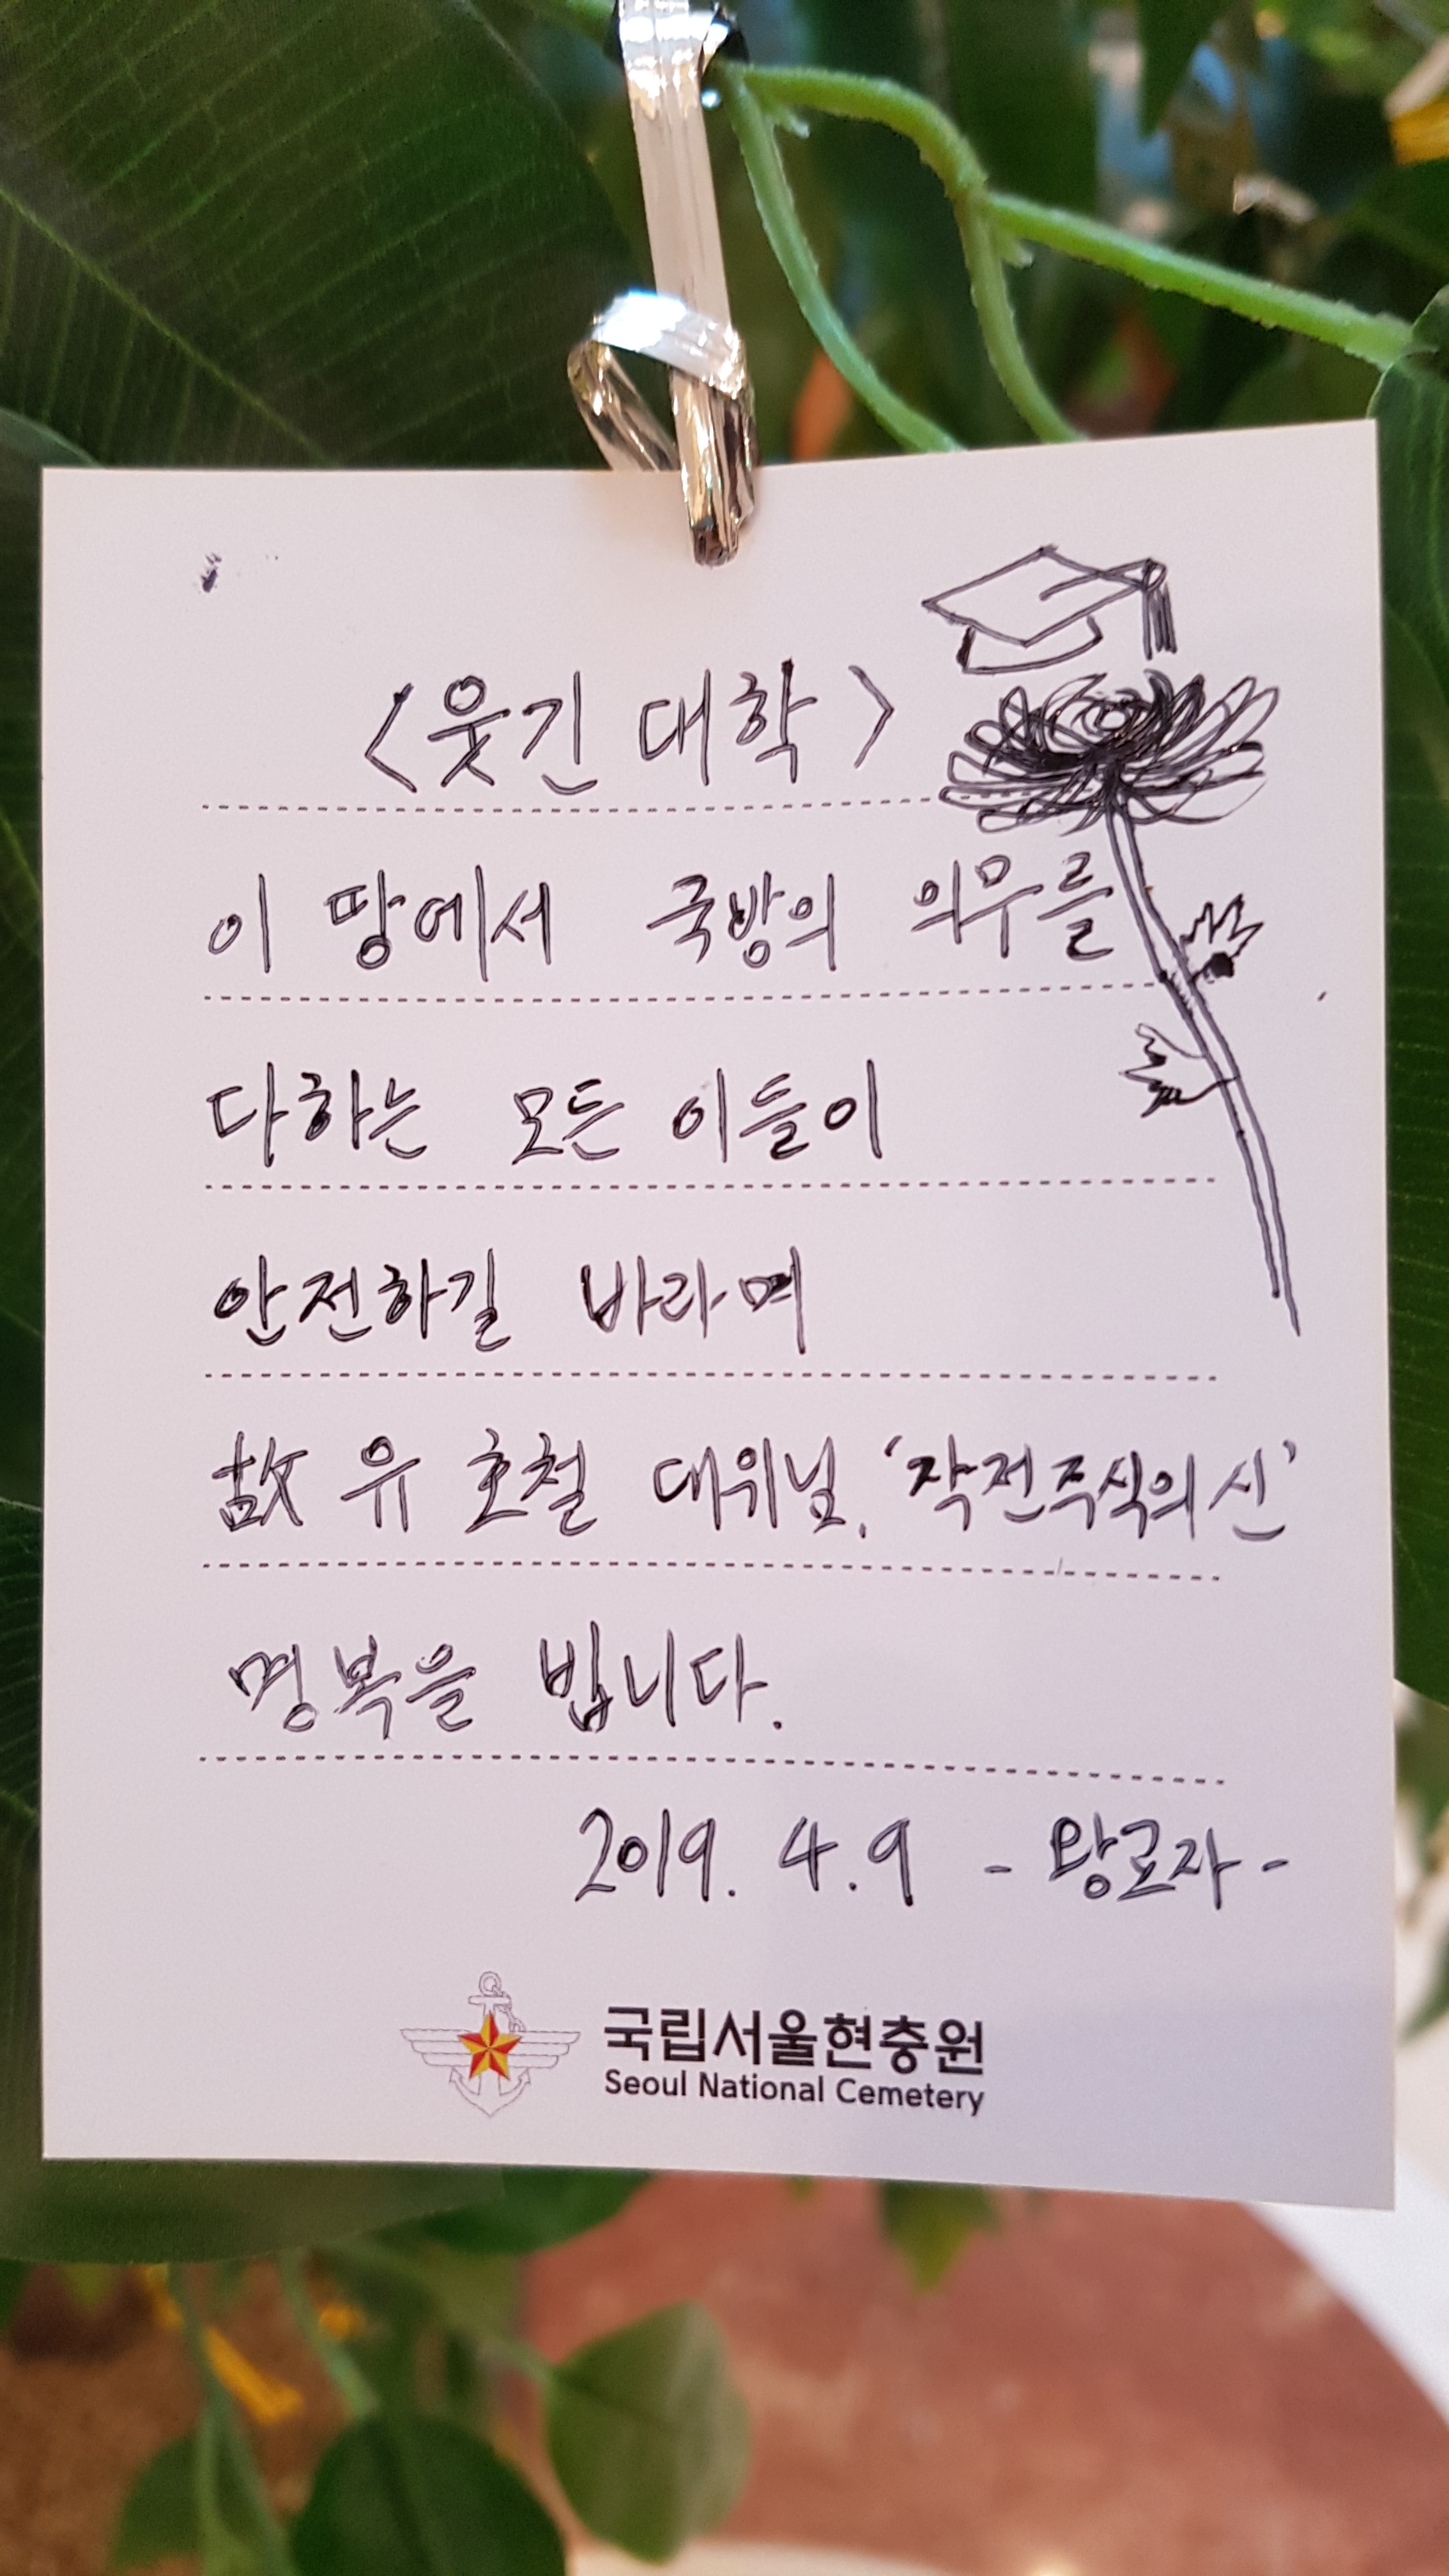 <웃긴 대학>
이 땅에서 국방의 의무를
다하는 모든 이들이
안전하길 바라며
故 유 호철 대위님, '작전주식의신'
명복을 빕니다.
2019. 4. 9 - 왕고자 -
국립서울현충원
Seoul National Cemetery